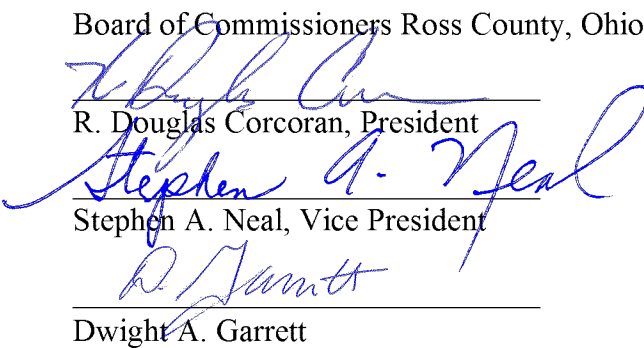 Board of Commissioners Ross County, Ohio
R. Douglas Corcoran
R. Douglas Corcoran, President
Stephen A. Neal
Stephen A. Neal, Vice President
D. Garrett
Dwight A. Garrett